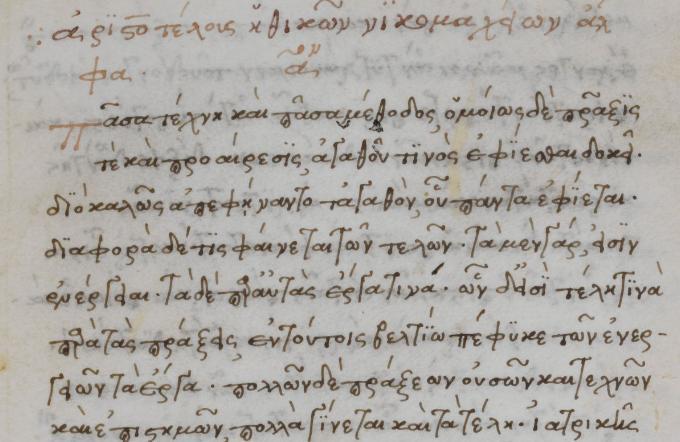 ἀρϊστοτέλοις ἠθικῶν νϊκομαχείων ἀλ
φα· α^ον
Πᾶσα τέχνη καὶ πᾶσα μέθοδος, ὁμοίως δὲ πρᾶξϊς
τὲ καὶ προαίρεσϊς, ἀγαθοῦ τϊνὸς ἐφΐεσθαι δοκεῖ·
δϊὸ καλῶς ἀπεφήναντο τἀγαθὸν, οὗ πάντα ἐφΐεται·
δϊαφορὰ δέ τϊς φαίνεται τῶν τελῶν· τὰ μὲν γάρ, εἰσϊν
ἐνέργειαι· τὰ δὲ παρ' αὐτὰς ἔργα τινά· ὧν δ' εἰσϊ τέλη τϊνὰ
παρὰ τὰς πράξεις, ἐν τούτοις βελτΐω πέφϋκε τῶν ἐνερ-
γειῶν τὰ ἔργα· πολλῶν δὲ πράξεων οὐσῶν καὶ τεχνῶν
καὶ ἐπιστημῶν, πολλὰ γΐνεται καὶ τὰ τέλη· ἰατρικῆς